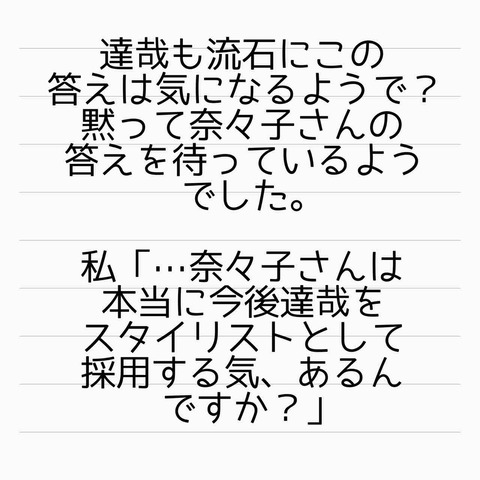 達哉も流石にこの
答えは気になるようで？
黙って奈々子さんの
答えを待っているよう
でした。
私「…奈々子さんは
本当に今後達哉を
スタイリストとして
採用する気、あるん
ですか？」